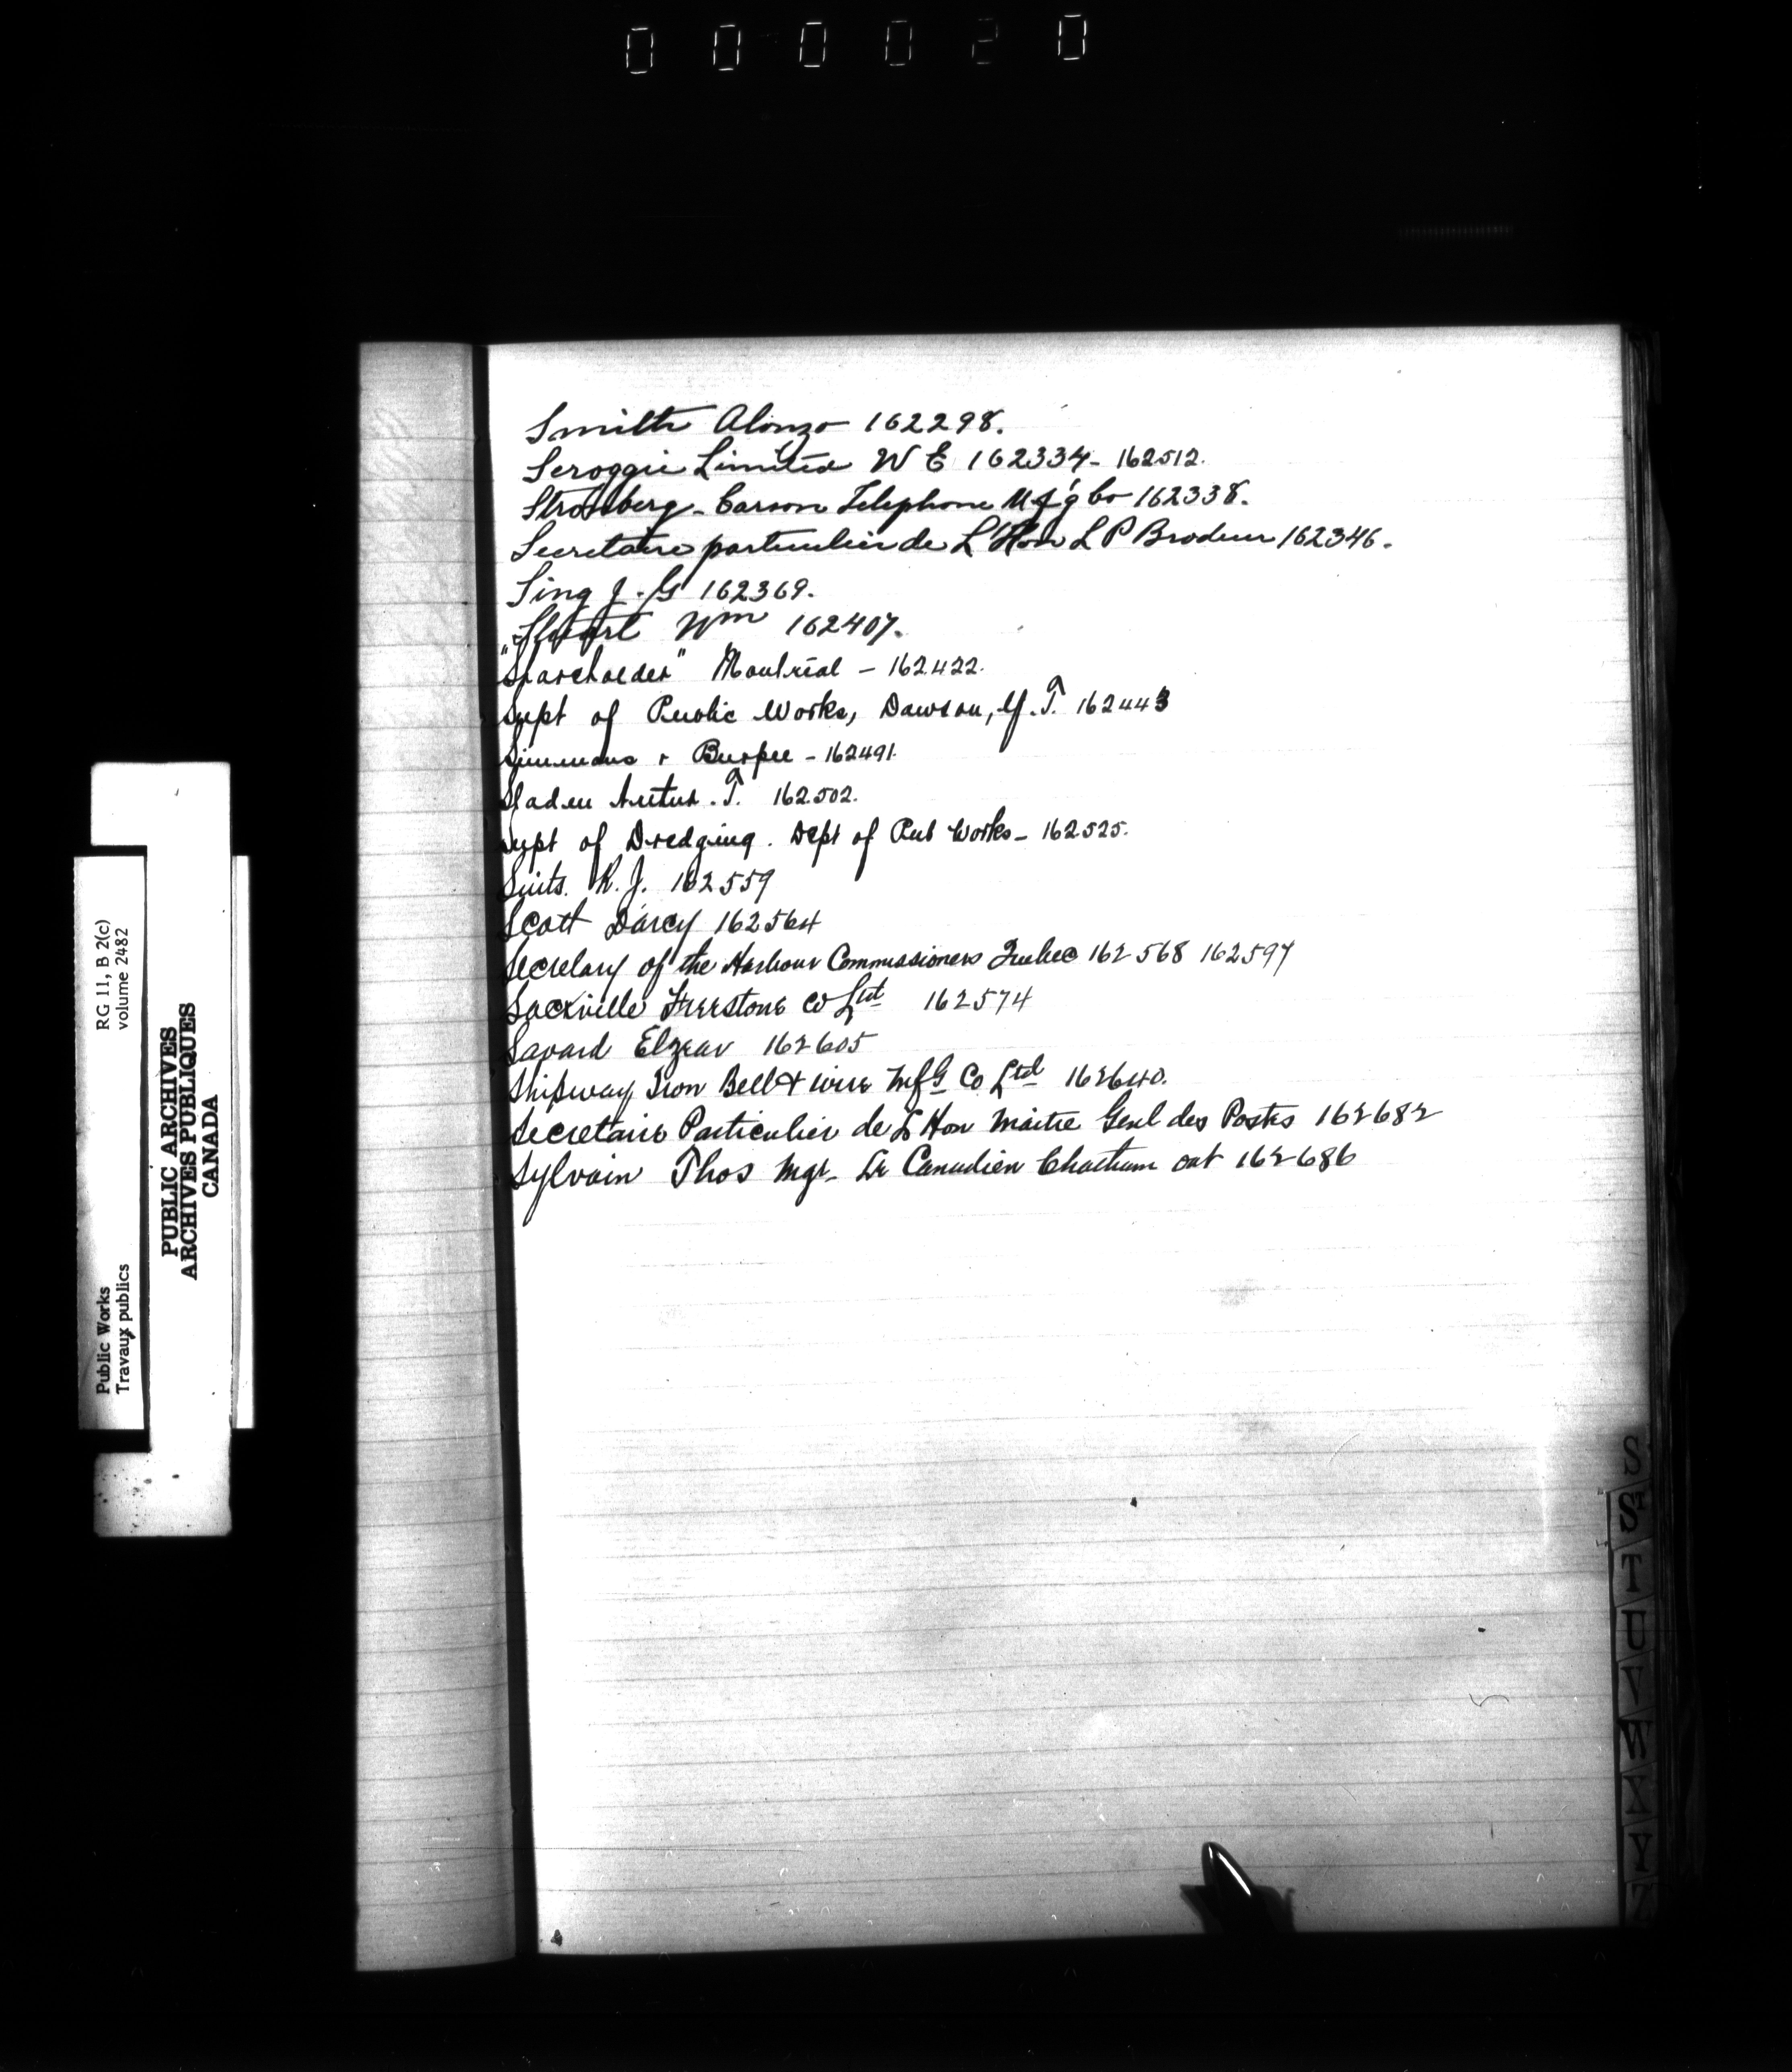 000020
Smith Alonzo 162298.
Scroggie Limited W E 162334- 162512.
Stromberg-Carson Telephone Mf'g Co 162338.
Secretaire particulier de L'Hon L P Brodeur 162346.
Sing J. G 162369.
Stewart Wm 162407.
"Shareholder" Montreal - 162422.
Supt of Public Works, Dawson, Y.T. 162443
Simmons & Burpee - 162491.
Sladen Arthur. F. 162502.
Supt of Dredging. Dept of Pub Works- 162525.
Suits. R. J. 162559
Scott Darcy 162564
Secretary of the Harbour Commissioners Quebec 162568 162597
Sackville Freestone Co Ltd 162574
Savard Elzear 162605
Shipway Iron Bell & Wire Mfg Co Ltd 162640.
Secretaire Particulier de L Hon Maitre Genl des Postes 162682
Sylvain Thos Mgr- Le Canadien Chatham ont 162686
S
ST
T
U
V
W
X
Y
Z
RG 11, B 2(c)
volume 2482
Public Works
Travaux publics
PUBLIC ARCHIVES
ARCHIVES PUBLIQUES
CANADA